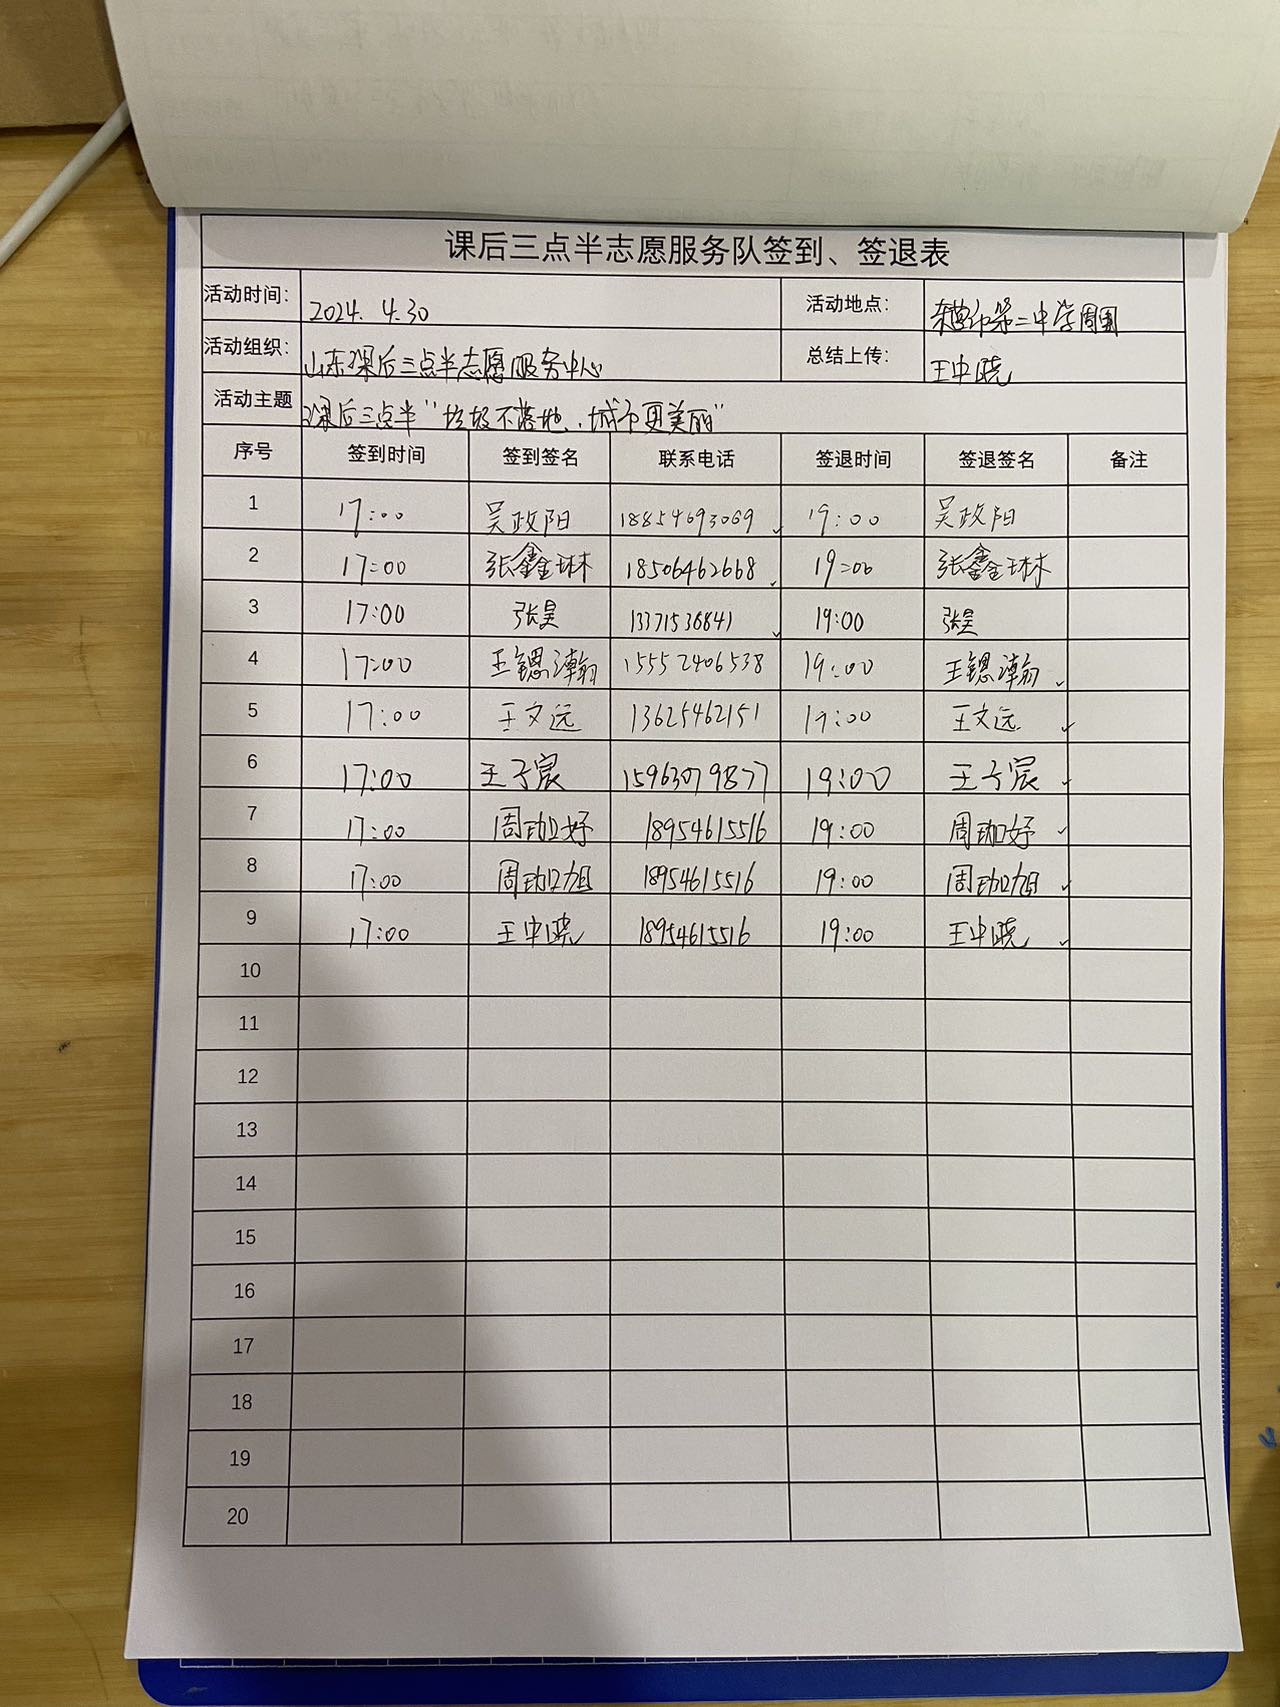 课后三点半志愿服务队签到、签退表
活动时间: 2024. 4.30 活动地点: 东营市第二中学周围
活动组织: 山东课后三点半志愿服务中心 总结上传: 王中晓
活动主题 课后三点半“垃圾不落地,城市更美丽”
序号 签到时间 签到签名 联系电话 签退时间 签退签名 备注
1 17:00 吴政阳 18854693069 19:00 吴政阳
2 17:00 张鑫琳 18506462668 19:00 张鑫琳
3 17:00 张昊 13371536841 19:00 张昊
4 17:00 王锶瀚 15552406538 19:00 王锶瀚
5 17:00 王文远 13625462151 19:00 王文远
6 17:00 王子宸 15963079877 19:00 王子宸
7 17:00 周珈妤 18954615516 19:00 周珈妤
8 17:00 周珈旭 18954615516 19:00 周珈旭
9 17:00 王中晓 18954615516 19:00 王中晓
10
11
12
13
14
15
16
17
18
19
20